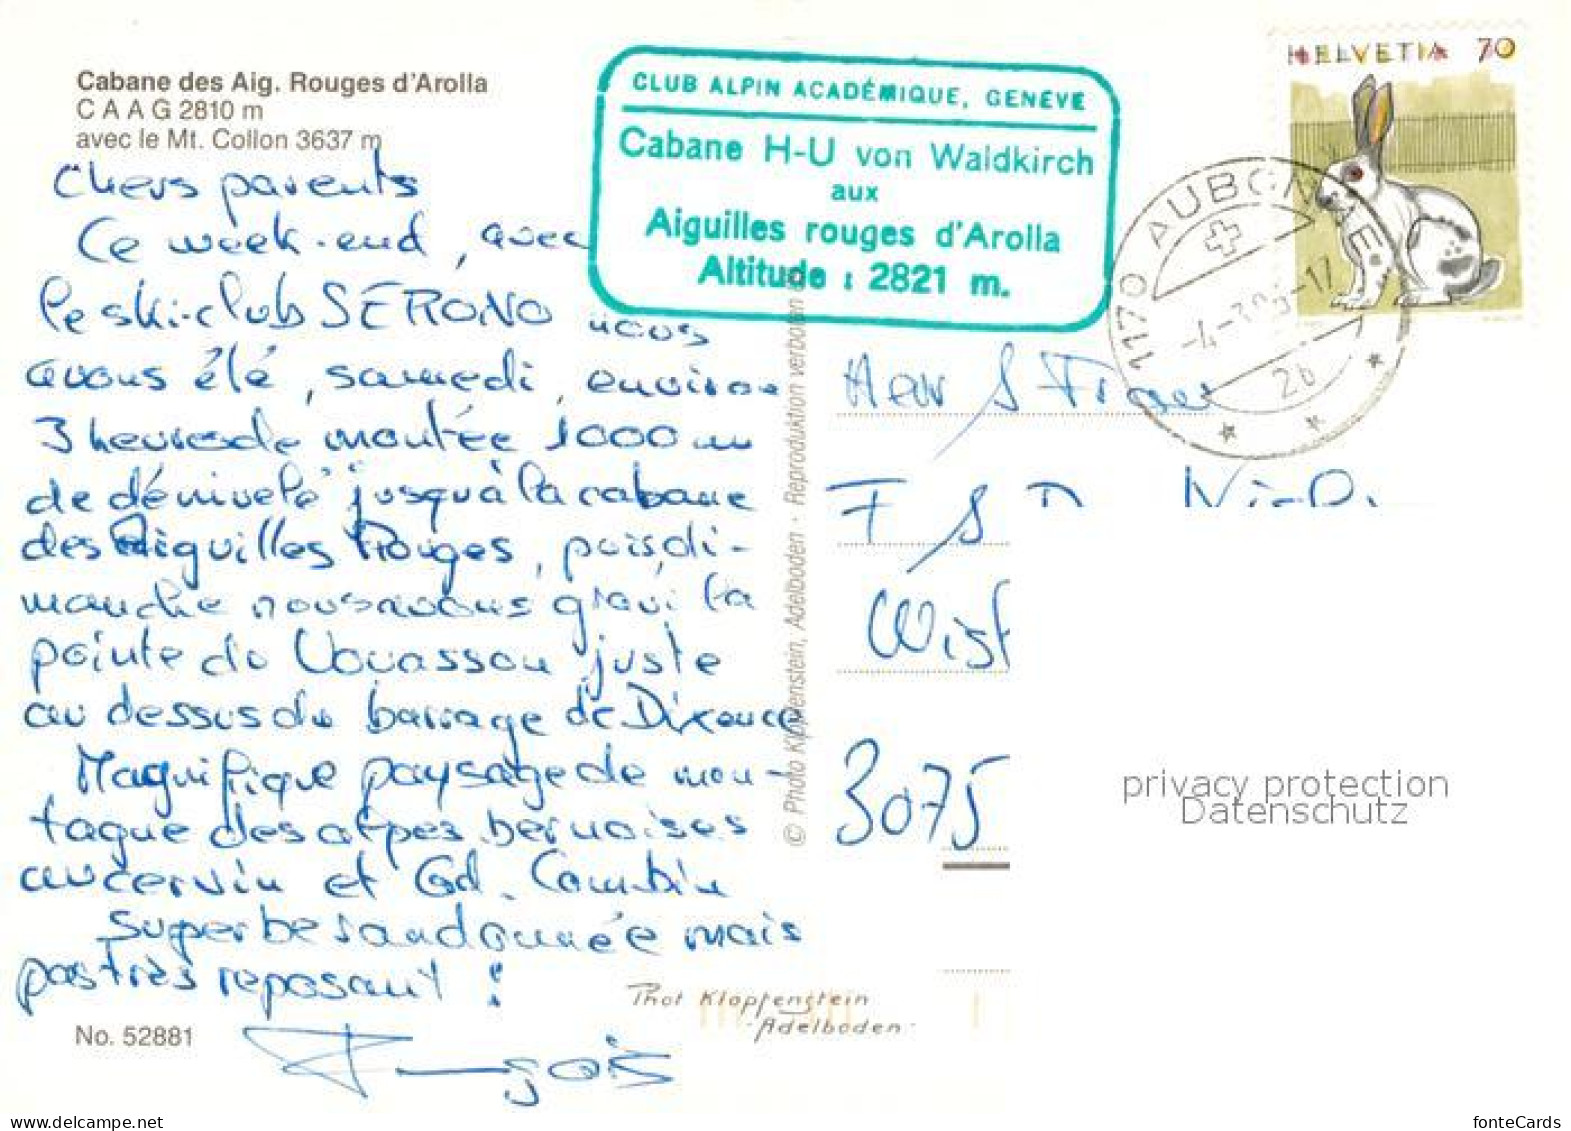 Cabane des Aig. Rouges d'Arolla
C A A G 2810 m
avec le Mt. Collon 3637 m
Chers parents
Ce week-end, avec
le ski-club SERONO nous
avons été, samedi, environ
3 heures de montée 1000 m
de dénivelé jusqu'à la cabane
des Aiguilles Rouges, puis, di-
manche nous avons gravi la
pointe du Vouasson juste
au dessus du barrage de Dixence
Magnifique paysage de mon-
tagne des alpes bernoises
au cervin et Gd. Combin
Superbe randonnée mais
pas très reposant !
François
No. 52881
CLUB ALPIN ACADÉMIQUE, GENÈVE
Cabane H-U von Waldkirch
aux
Aiguilles rouges d'Arolla
Altitude : 2821 m.
HELVETIA 70
1170 AUBONNE
2b
© Photo Klopfenstein, Adelboden · Reproduktion verboten
Herr & Frau
F & D
3075
privacy protection
Datenschutz
Phot Klopfenstein
- Adelboden -
fonteCards